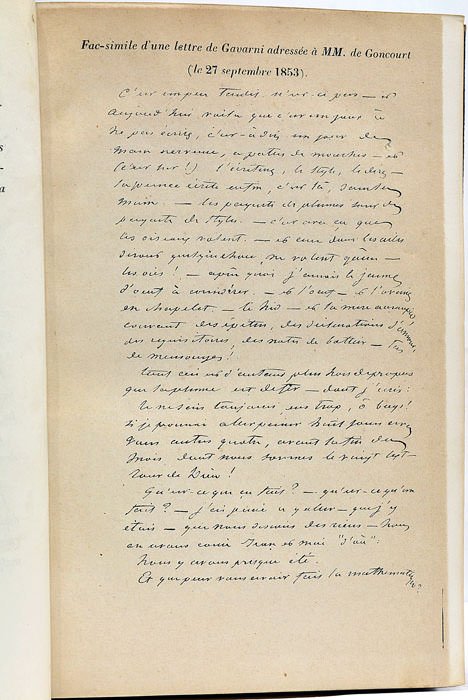 Fac-simile d'une lettre de Gavarni adressée à MM. de Goncourt
(le 27 septembre 1853).
C'est un peu tendis n'est-ce pas — et
aujourd'hui voilà que c'est un jour à
ne pas écrire, c'est-à-dire un jour de
main nerveuse, a pattes de mouches — et
(c'est sur!) l'écriture, le style, le dire —
la pensée écrite enfin, c'est là, dans la
main. — les paquets de plumes sont des
paquets de styles. — c'est avec ça que
les oiseaux volent. — et ceux dont les ailes
ne volent qu'en —
les oies! — après quoi j'aurais le jaune
d'oeuf à considérer. — et l'oeuf — et l'
en chapelet. — le nid — et la mère
couvant des épîtres, des déclarations d'amour,
des réquisitoires, des notes de — Tas
de mensonges!
Tout ceci est d'autant plus hors de propos
que la plume est de fer — dont j'écris:
Je ne sais toujours, trop, ô
si je pourrai aller passer huit jours
vous autres quatre, avant la fin du
mois dont nous sommes le vingt sept
jour de Dieu!
Qu'est-ce que ça fait? — qu'est-ce qu'on
fait? — j'ai pensé y aller — que j'y
étais — que nous disions des riens — nous
en avons causé Jean et moi "d'où":
nous y avons presque été.
Et que peut vous avoir fait la mathématique?